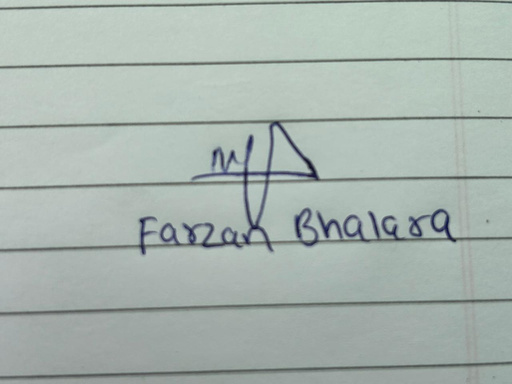 Farzan Bhalara